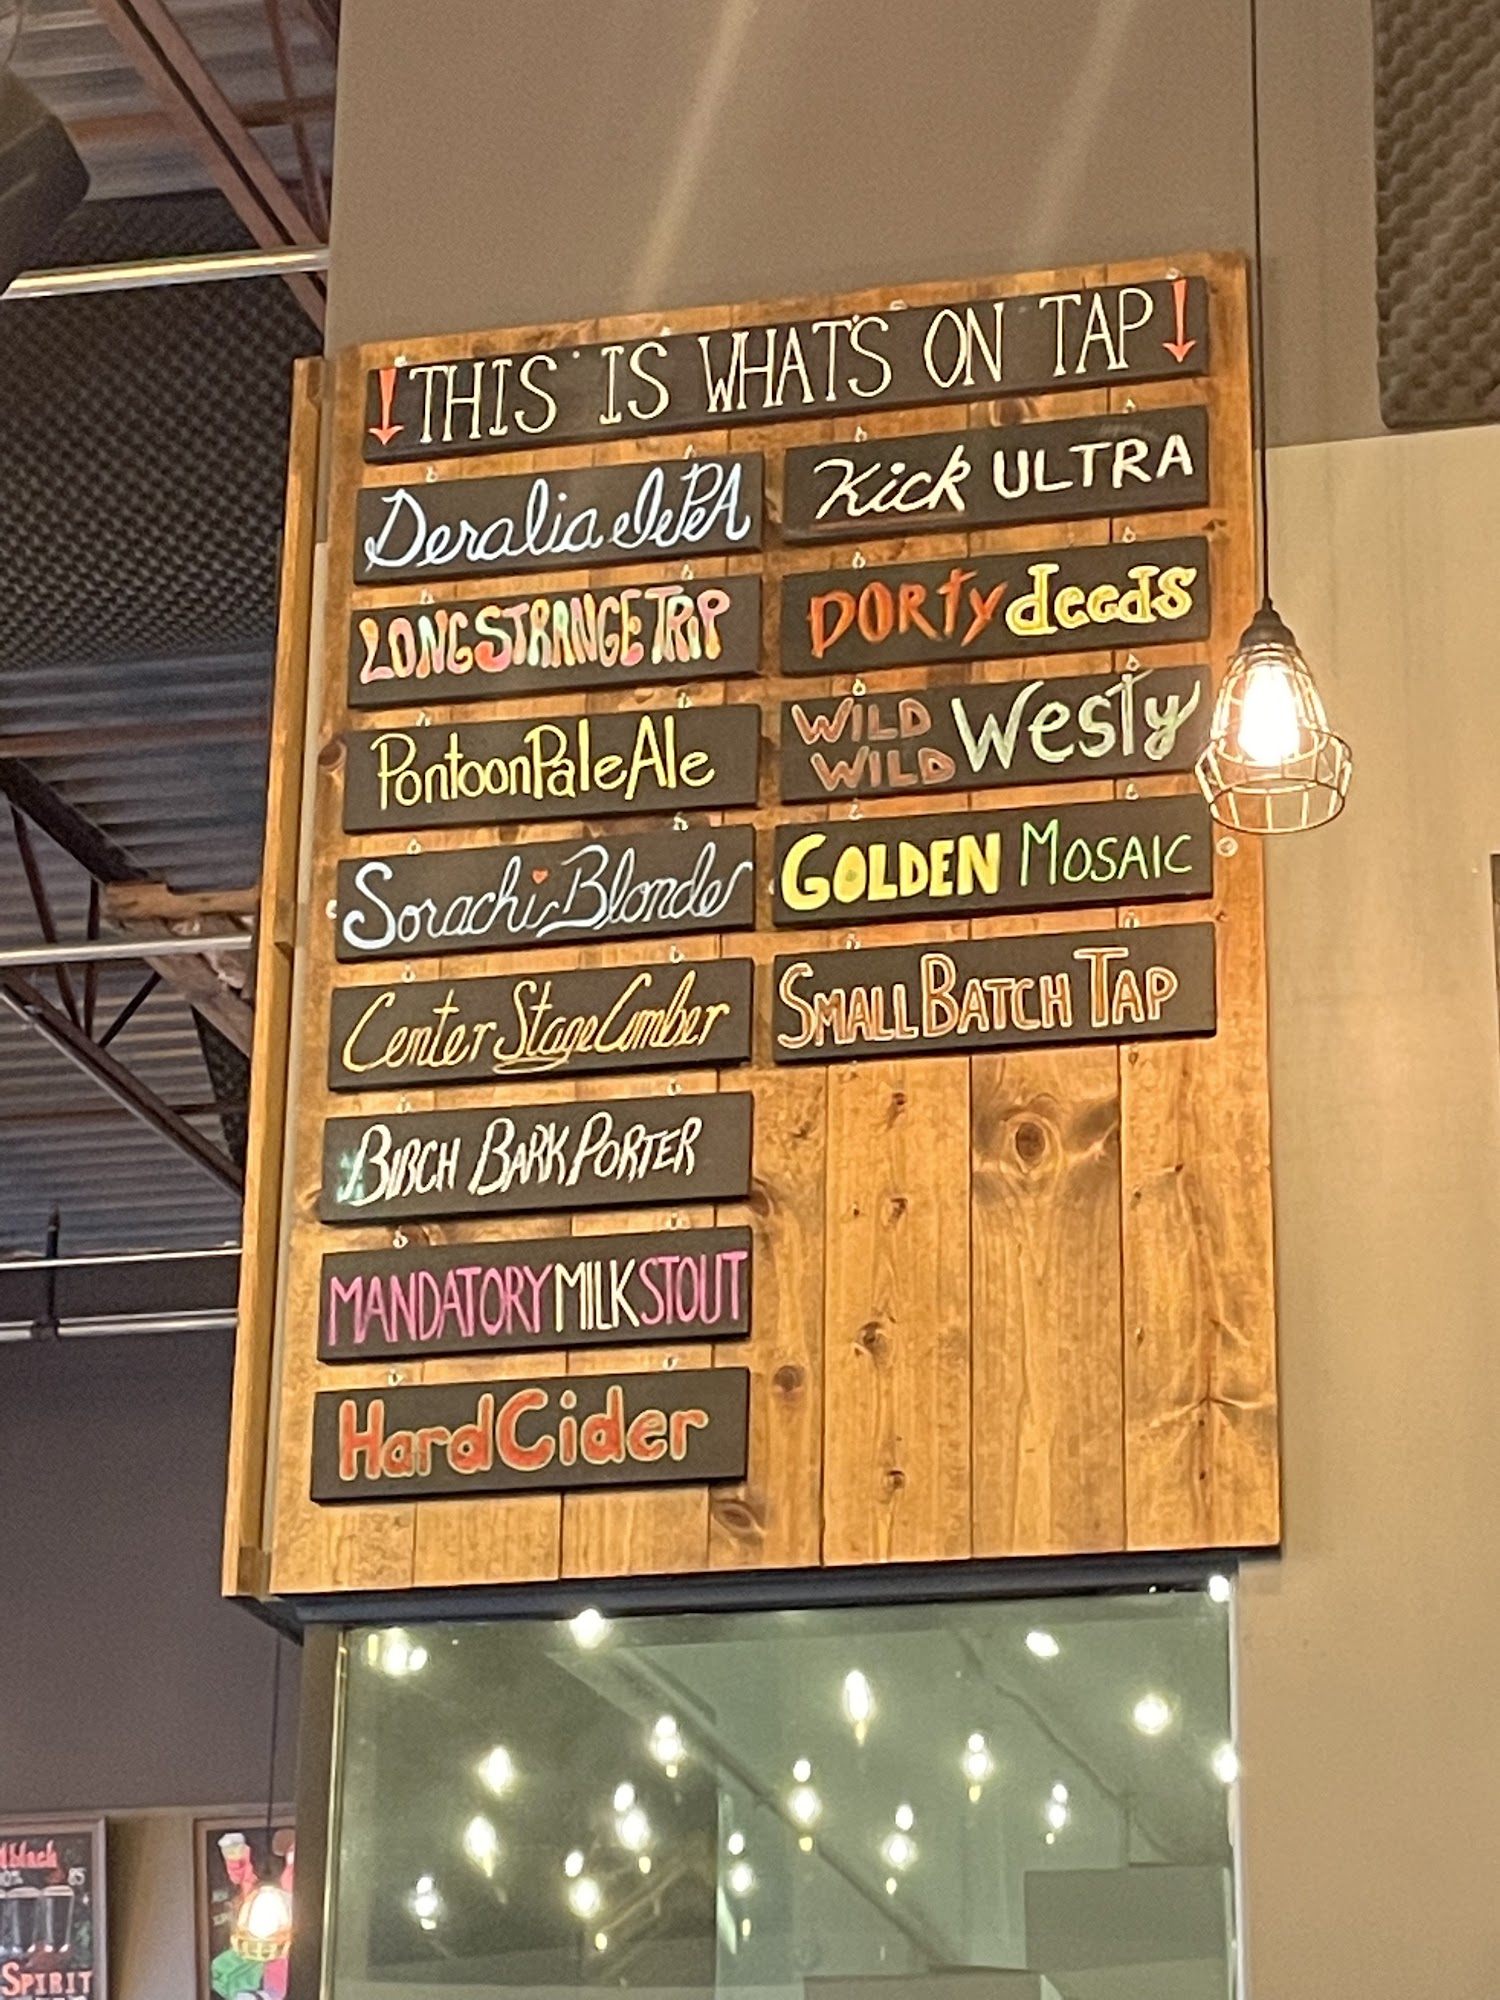 THIS IS WHAT'S ON TAP
Deralia IPA
LONG STRANGE TRIP
Pontoon Pale Ale
Sorachi Blonde
Center Stage Amber
BIRCH BARK PORTER
MANDATORY MILK STOUT
Hard Cider
Kick ULTRA
DORTY deeds
WILD
WILD Westy
GOLDEN MOSAIC
SMALL BATCH TAP
85
SPIRIT